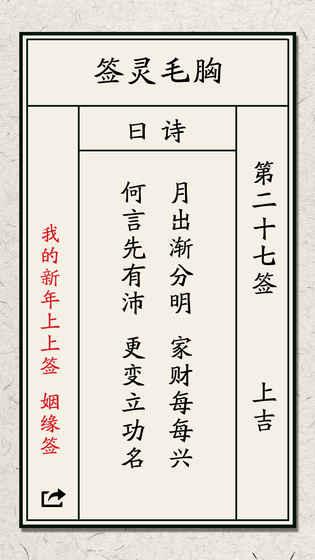 胸毛灵签
诗曰
第二十七签 上吉
月出渐分明 家财每每兴
何言先有沛 更变立功名
我的新年上上签 姻缘签